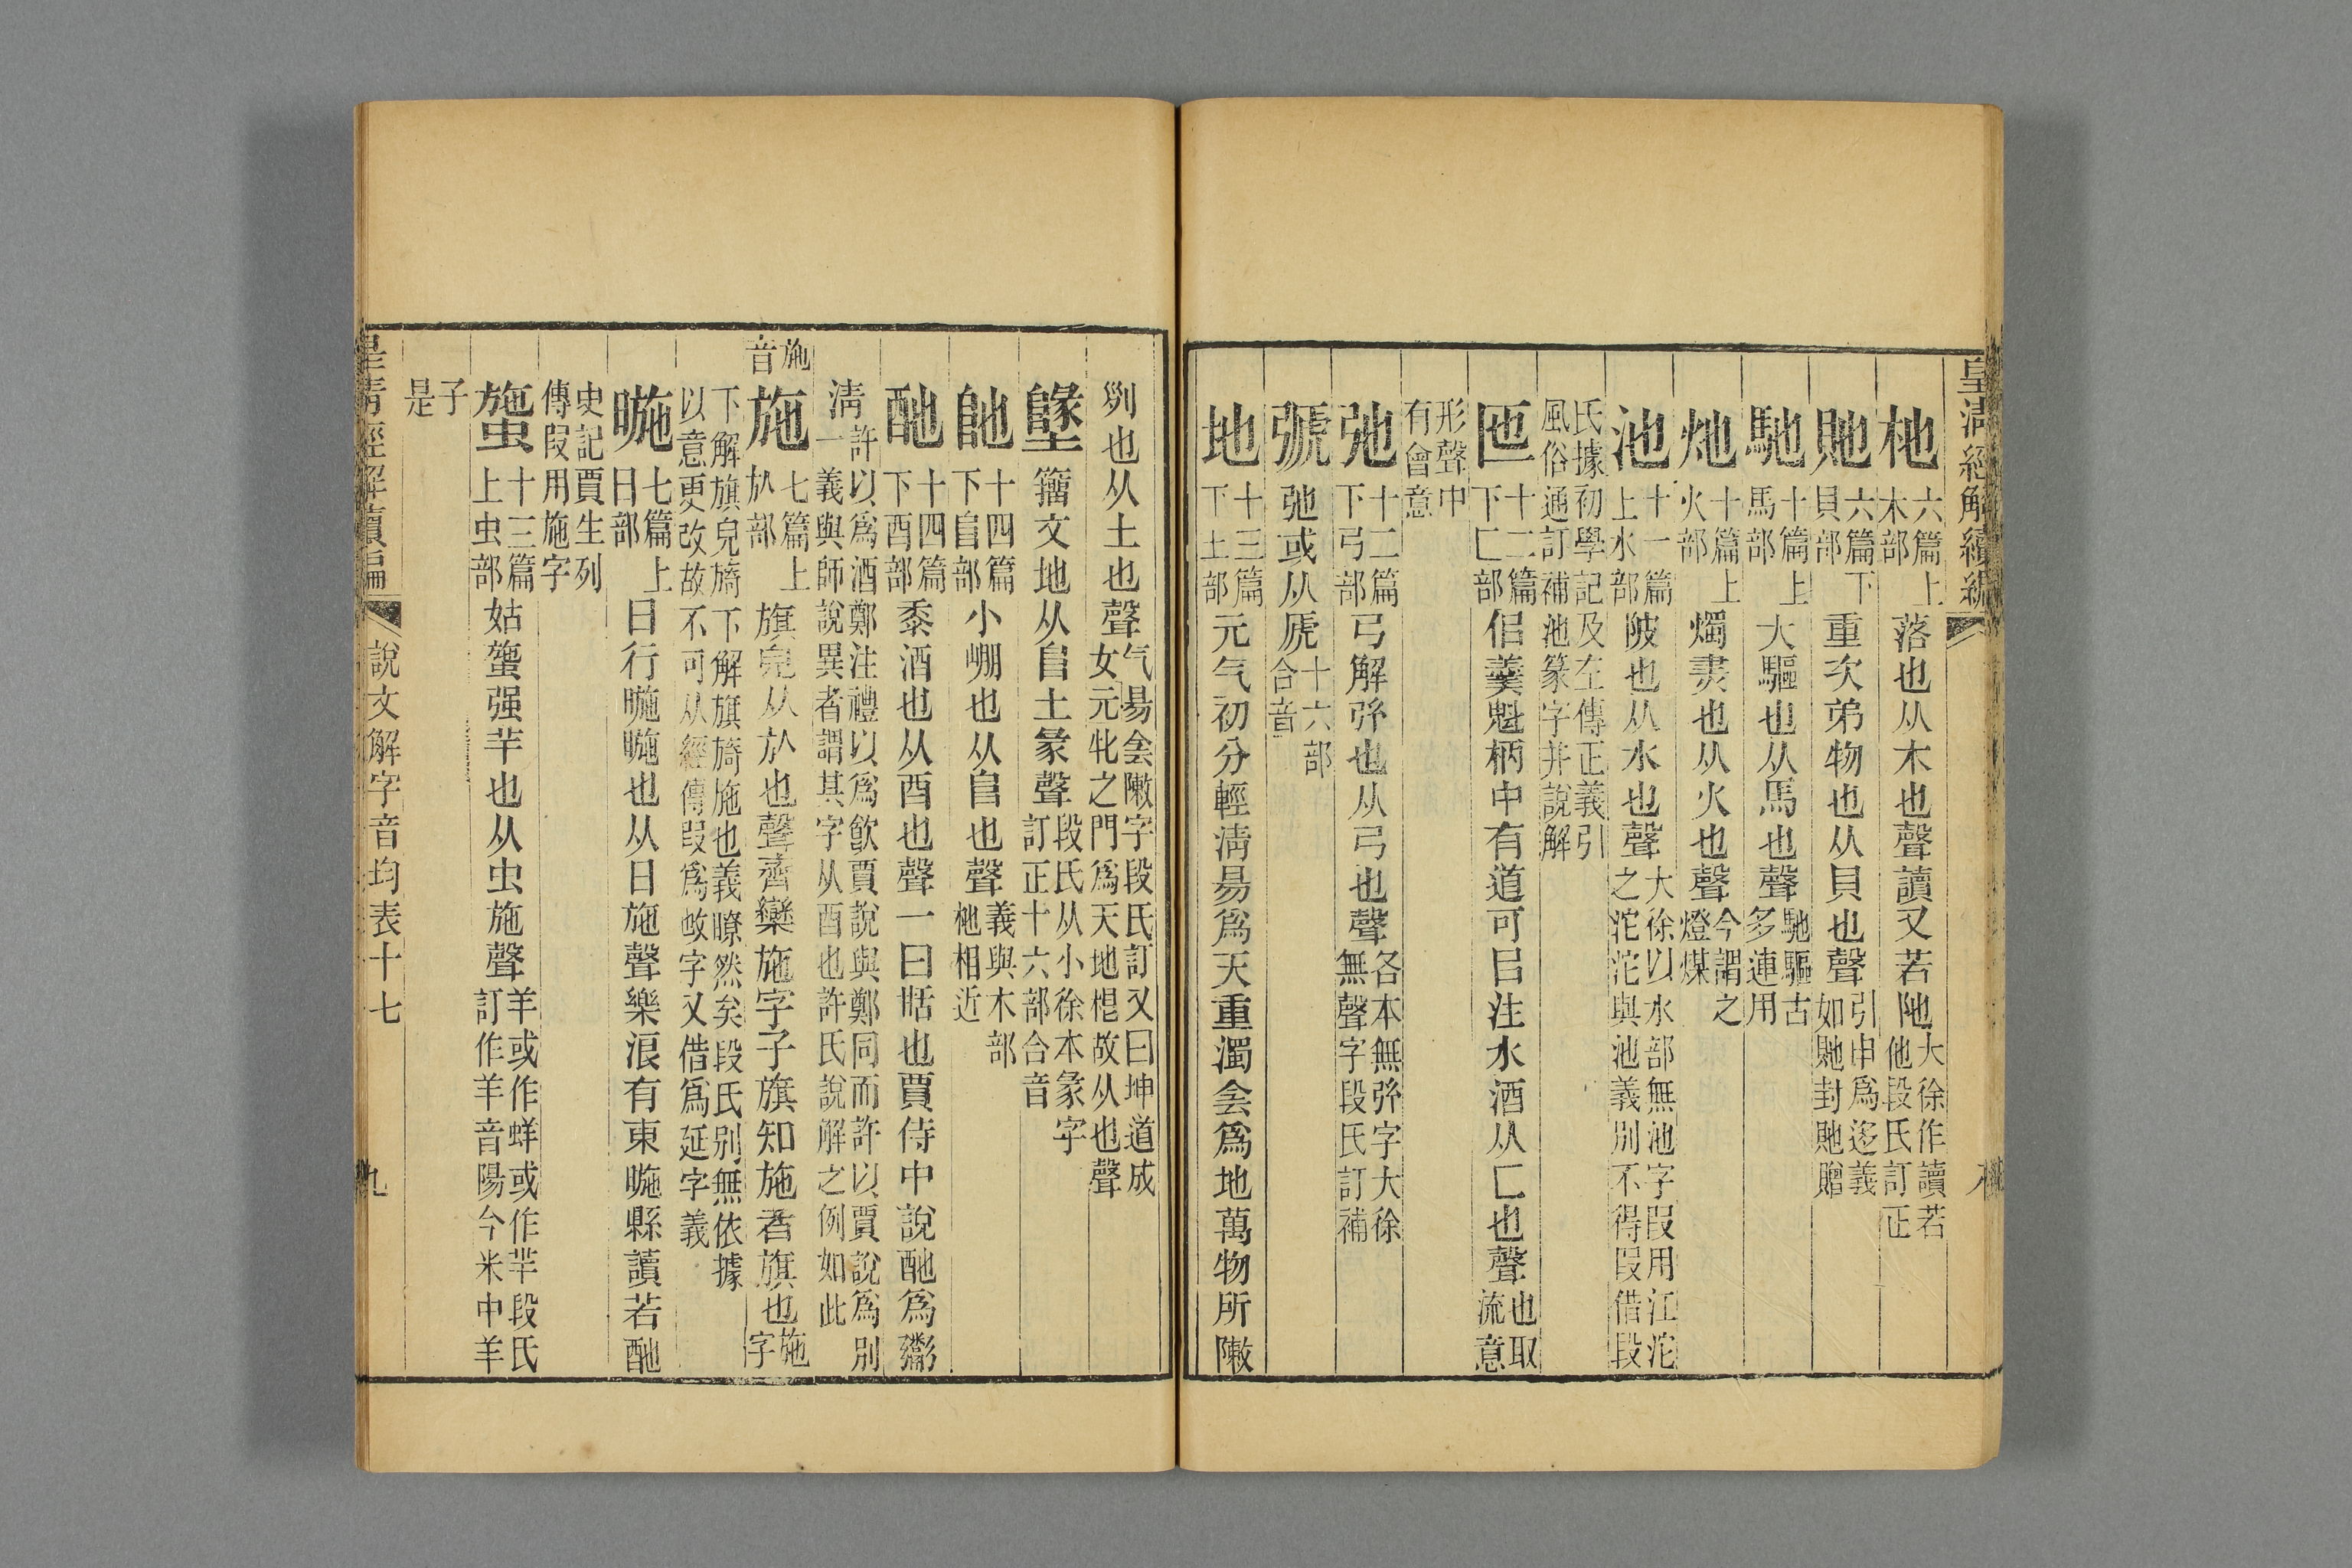 皇清經解續編
杝六篇上木部落也从木也聲讀又若阤大徐作讀若他段氏訂正
貤六篇下貝部重次弟物也从貝也聲引申爲迻義如貤封貤贈
馳十篇上馬部大驅也从馬也聲馳驅古多連用
灺十篇上火部燭㶳也从火也聲今謂之燈煤
池十一篇上水部陂也从水也聲大徐以水部無池字叚用江沱之沱沱與池義別不得叚借段
氏據初學記及左傳正義引風俗通訂補池篆字并說解
匜十二篇下匚部侣羹魁柄中有道可㠯注水酒从匚也聲也取流意
形聲中有會意
弛十二篇下弓部弓解弙也从弓也聲各本無弙字大徐無聲字段氏訂補
號弛或从虒十六部合音
地十三篇下土部元气初分輕清昜爲天重濁侌爲地萬物所敶
𠛱也从土也聲气昜侌敶字段氏訂又曰坤道成女元牝之門爲天地根故从也聲
墬籒文地从𨸏土彖聲段氏从小徐本彖字訂正十六部合音
阤十四篇下𨸏部小崩也从𨸏也聲義與木部杝相近
酏十四篇下酉部黍酒也从酉也聲一曰甛也賈侍中說酏爲鬻
清許以爲酒鄭注禮以爲飲賈說與鄭同而許以賈說爲別一義與師說異者謂其字从酉也許氏說解之例如此
施音施七篇上㫃部旗皃从㫃也聲齊欒施字子旗知施者旗也施字
下解旗皃旖下解旗旖施也義瞭然矣段氏别無依據以意更改故不可从經傳叚爲㪉字又借爲延字義
暆七篇上日部日行暆暆也从日施聲樂浪有東暆縣讀若酏
史記賈生列傳叚用施字
䗐十三篇上虫部姑䗐强羋也从虫施聲羊或作蛘或作羋段氏訂作羊音陽今米中羊
子是
皇清經解續編 說文解字音均表十七 九